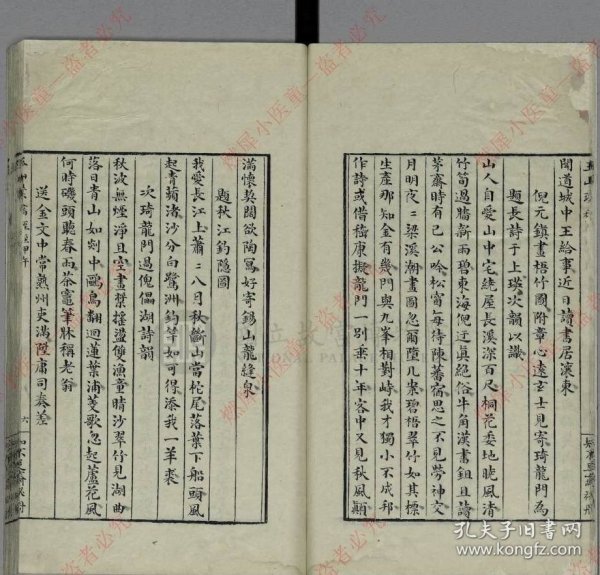 聞道城中王給事近日讀書居瀼東
倪元鎮畫梧竹圖附章心遠玄士見寄琦龍門為
題長詩于上瑛次韻以識
山人自愛山中宅繞屋長溪深百尺桐花委地晚風清
竹筍過牆新雨碧東海倪迂真絕俗牛角漢書鉏且讀
茅齋時有已公吟松窗每待陳蕃宿思之不見勞神交
月明夜夜梁溪潮畫圖忽爾墮几案碧梧翠竹如其標
生產那知金有幾門與九峯相對峙我才獨小不成邦
作詩或借嵇康擬龍門一別垂十年客中又見秋風顛
滿懷契闊欲陶寫好寄錫山龍縫泉
題秋江釣隱圖
我愛長江上蕭二八月秋斷山當柁尾落葉下船頭風
起青蘋渚沙分白鷺洲釣竿如可得添我一羊裘
次琦龍門過倪傴湖詩韻
秋波無煙淨且空畫槳搖盪使漁童晴沙翠竹見湖曲
落日青山如剡中鷗鳥翻迴蓮葉浦菱歌忽起蘆花風
何時磯頭聽春雨茶竈筆牀稱老翁
送金文中常熟州吏滿陞庸司奏差
六
燃犀小医童一盗者必究
孔夫子旧书网
www.kongfz.com